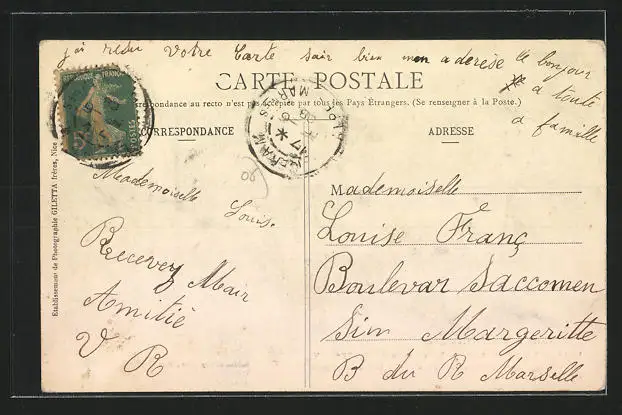 j'ai resu votre Carte sair bien mon aderèse le bonjour
a toute
a famille
CARTE POSTALE
correspondance au recto n'est pas acceptée par tous les Pays Étrangers. (Se renseigner à la Poste.)
CORRESPONDANCE
ADRESSE
REPUBLIQUE FRANÇAISE
POSTES
Meademoiselle
Louis.
Recevez Mair
Amitié
V R
Mademoiselle
Louise Franç
Boulevar Saccomen
Sin Margeritte
B du R Marselle
Etablissement de Photographie GILETTA frères, Nice